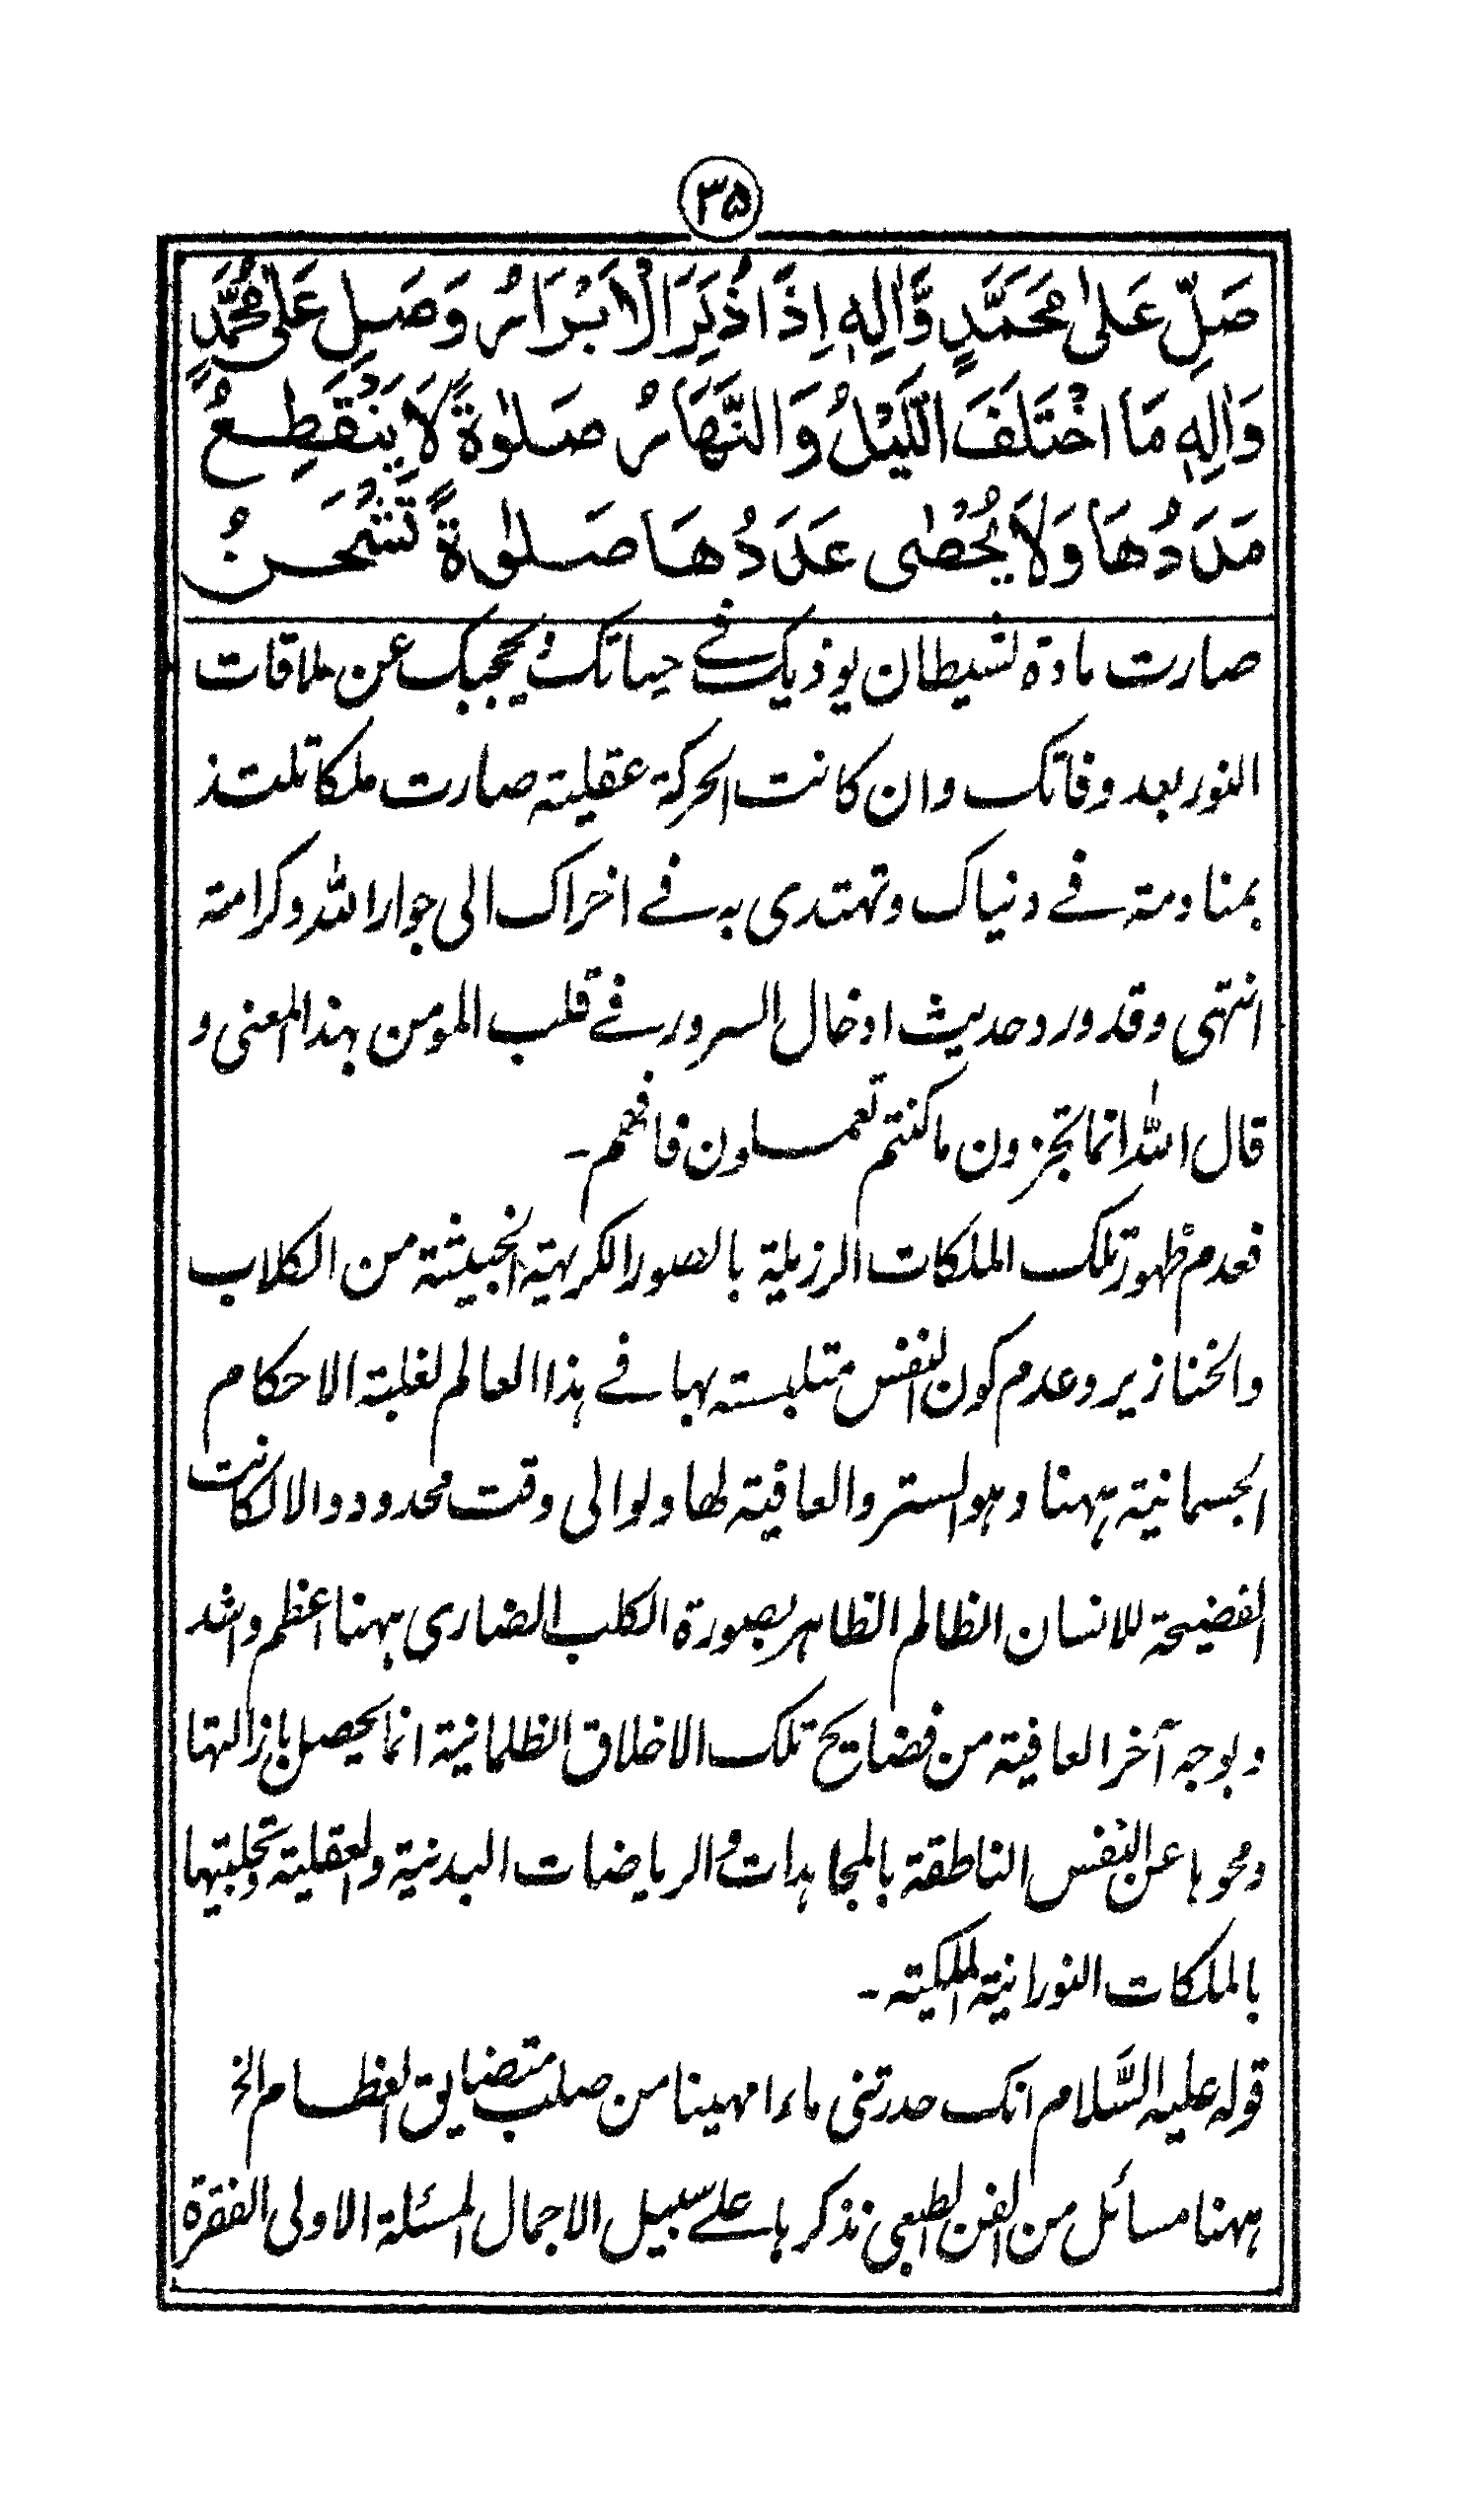 ۳۵
صَلِّ عَلٰى مُحَمَّدٍ وَّاٰلِهٖ اِذَا ذُكِرَ الْاَبْرَارُ وَصَلِّ عَلٰى مُحَمَّدٍ
وَاٰلِهٖ مَا اخْتَلَفَ اللَّيْلُ وَالنَّهَارُ صَلٰوةً لَا يَنْقَطِعُ
مَدَدُهَا وَلَا يُحْصٰى عَدَدُهَا صَلٰوةً تَشْحَنُ
صارت مادة لشيطان يوذيك في حياتك ويحجبك عن ملاقات
النور بعد وفاتك وان كانت الحركة عقلية صارت ملكا تلتذ
بمنادمة في دنياك وتهتدى به في اخراك الى جوار الله وكرامة
انتهى وقد ورد حديث ادخال السرور في قلب المومن بهذا المعنى و
قال الله انما تجزون ما كنتم تعملون فافهم۔
فعدم ظهور تلك الملكات الرزيلة بالصور الكريهة الخبيثة من الكلاب
والخنازير وعدم كون النفس متلبسة بها في هذا العالم لغلبة الاحكام
الجسمانية ههنا وهو الستر والعافية لها ولو الى وقت محدود والا لكانت
الفضيحة للانسان الظالم الظاهر بصورة الكلب الضارى ههنا اعظم واشد
وبوجه آخر العافية من فضايح تلك الاخلاق الظلمانية انما يحصل بازالتها
ومحوها عن النفس الناطقة بالمجاهدات والرياضات البدنية والعقلية وتحليتها
بالملكات النورانية الملكية۔
قوله عليه السَّلام انك حدرتنى ماءا مهينا من صلب متضايق العظام الخ
ههنا مسائل من الفن الطبعى نذكرها على سبيل الاجمال المسئلة الاولى الفقرة